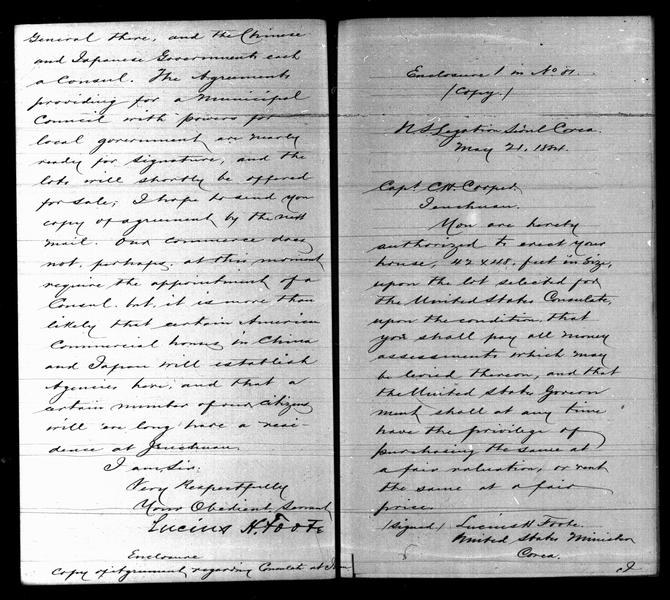 General there, and the Chinese
and Japanese Governments each
a Consul. The Agreements
providing for a Municipal
Council with powers for
local government are nearly
ready for signature, and the
lots will shortly be offered
for sale; I hope to send you
copy of agreement by the next
mail. Our commerce does
not, perhaps, at this moment
require the appointment of a
Consul. but, it is more than
likely that certain American
Commercial houses in China
and Japan will establish
Agencies here; and that a
certain number of our citizens
will 'ere long have a resi-
dence at Jenchuan.
I am, Sir:
Very Respectfully
Your Obedient Servant
Lucius H. Foote
Enclosure
Copy of Agreement regarding Consulate at
Enclosure 1 in No 81.
(Copy.)
US Legation Söul Corea.
May 21, 1884.
Capt C.H. Cooper,
Jenchuan.
You are hereby
authorized to erect your
house, 42 x 48. feet in size,
upon the lot selected for
the United States Consulate,
upon the condition, that
you shall pay all money
assessments which may
be levied thereon, and that
the United States Govern
ment shall at any time
have the privilege of
purchasing the same at
a fair valuation, or rent
the same at a fair
price.
(signed) Lucius H Foote.
United States Minister
Corea.